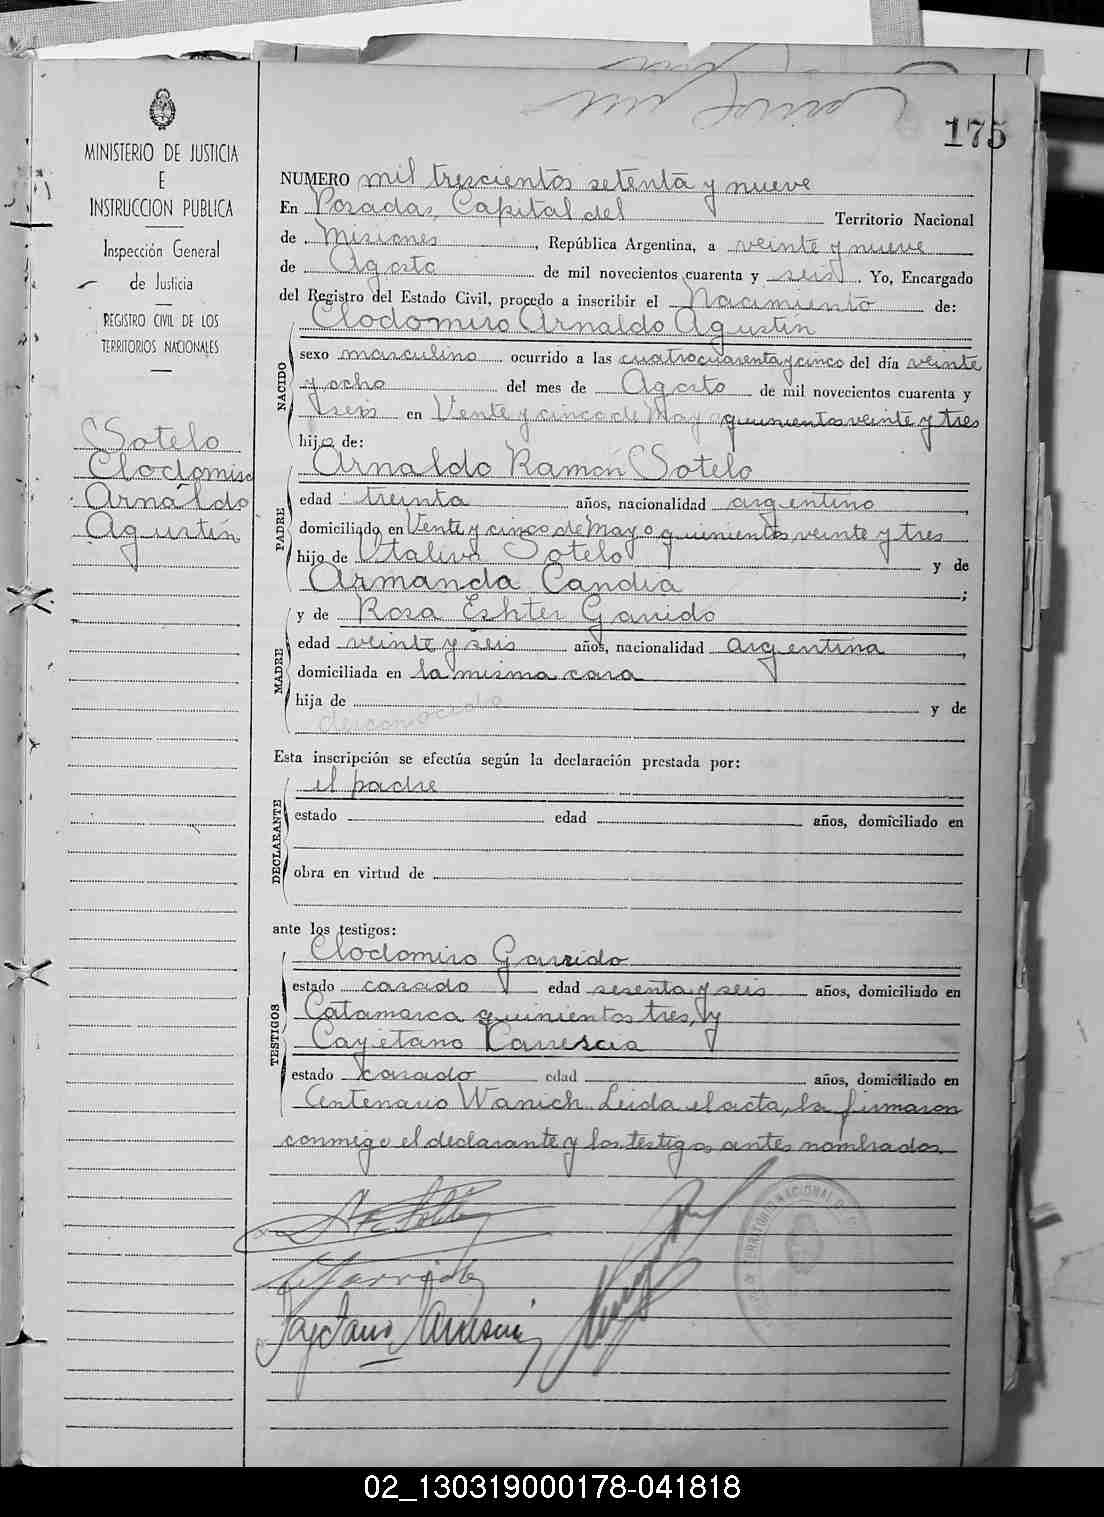 175
MINISTERIO DE JUSTICIA
E
INSTRUCCION PUBLICA
Inspección General
de Justicia
REGISTRO CIVIL DE LOS
TERRITORIOS NACIONALES
Sotelo
Clodomiro
Arnaldo
Agustín
NUMERO mil trescientos setenta y nueve
En Posadas, Capital del Territorio Nacional
de Misiones, República Argentina, a veinte y nueve
de Agosto de mil novecientos cuarenta y seis. Yo, Encargado
del Registro del Estado Civil, procedo a inscribir el Nacimiento de:
Clodomiro Arnaldo Agustin
NACIDO
sexo masculino ocurrido a las cuatro cuarenta y cinco del día veinte
y ocho del mes de Agosto de mil novecientos cuarenta y
seis en Vente y cinco de Mayo quinientos veinte y tres
hijo de:
PADRE
Arnaldo Ramón Sotelo
edad treinta años, nacionalidad argentino,
domiciliado en Vente y cinco de Mayo quinientos veinte y tres
hijo de Sotelo y de
Armanda Candia;
MADRE
y de Rosa Eshter Garrido
edad veinte y seis años, nacionalidad argentina,
domiciliada en la misma casa
hija de y de
desconocido
Esta inscripción se efectúa según la declaración prestada por:
DECLARANTE
el padre
estado edad años, domiciliado en
obra en virtud de
ante los testigos:
TESTIGOS
Clodomiro Garrido
estado casado edad sesenta y seis años, domiciliado en
Catamarca quinientos tres, y
Cayetano
estado casado edad años, domiciliado en
Centenario Wanich Leida el acta, la firmaron
conmigo el declarante y los testigos antes nombrados.
TERRITORIO NACIONAL
02_130319000178-041818